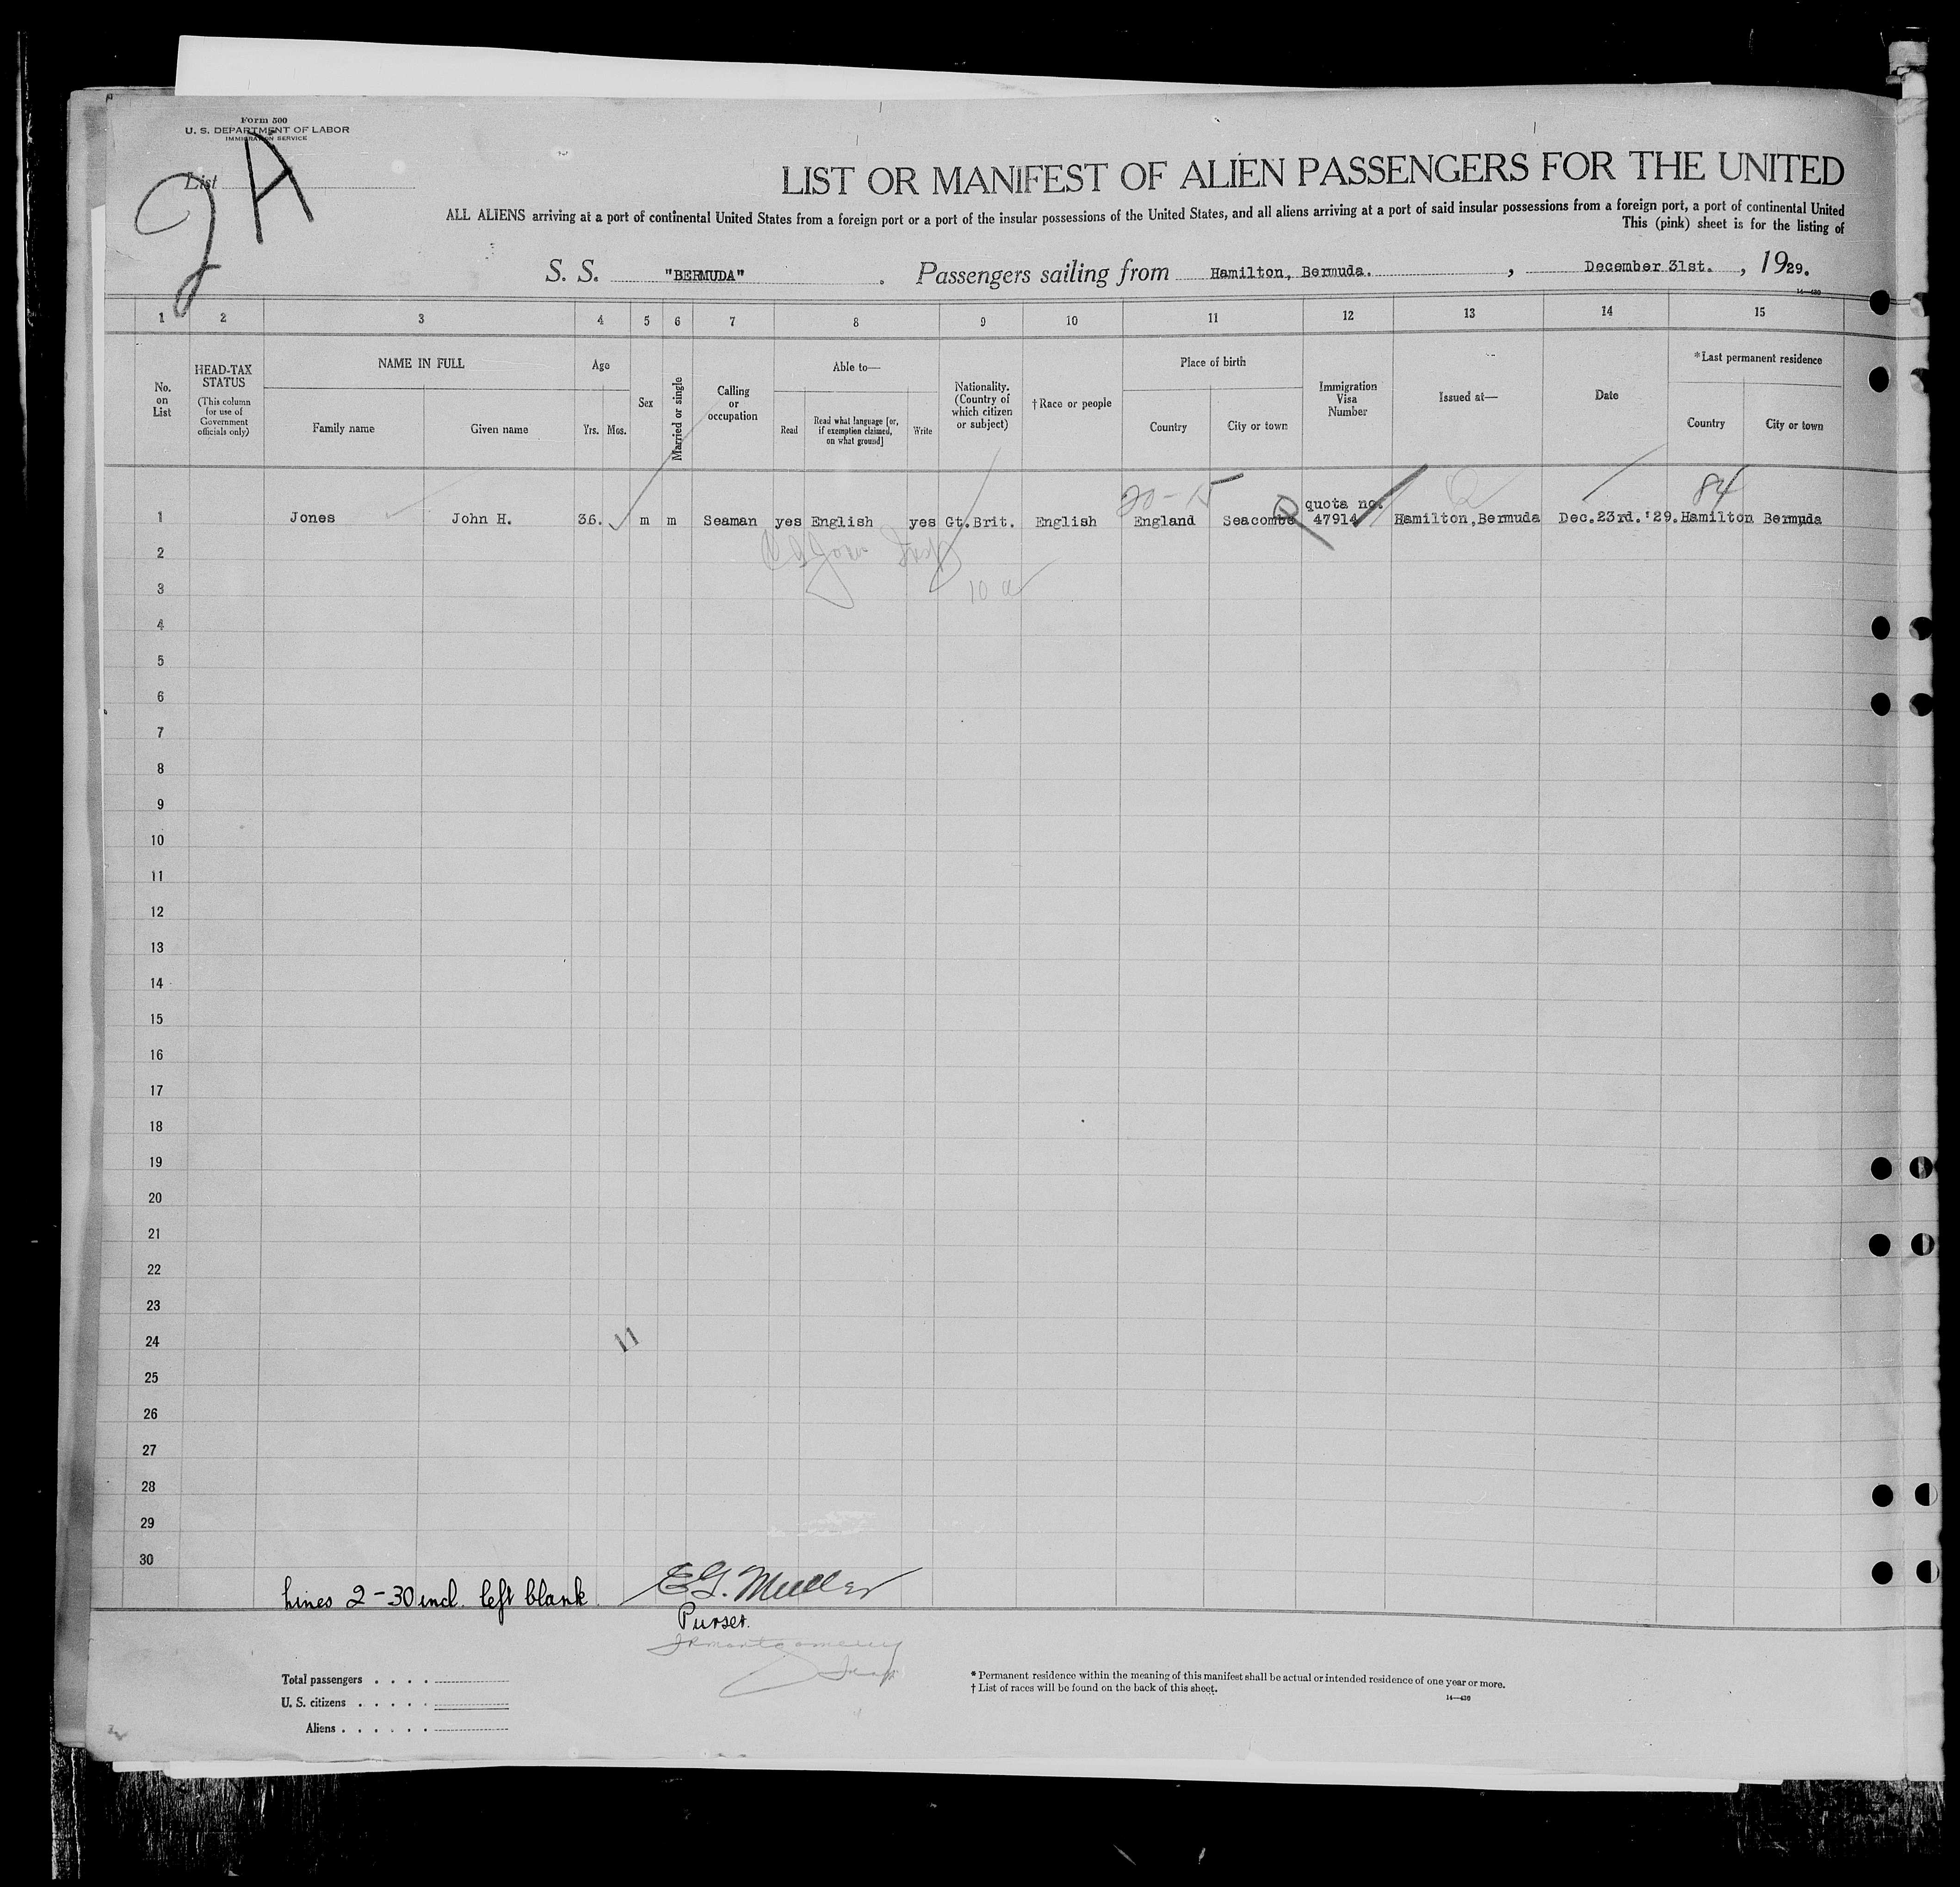 Form 500
U. S. DEPARTMENT OF LABOR
IMMIGRATION SERVICE
List
2 A
LIST OR MANIFEST OF ALIEN PASSENGERS FOR THE UNITED
ALL ALIENS arriving at a port of continental United States from a foreign port or a port of the insular possessions of the United States, and all aliens arriving at a port of said insular possessions from a foreign port, a port of continental United
This (pink) sheet is for the listing of
S. S. "BERMUDA" . Passengers sailing from Hamilton, Bermuda. , December 31st. , 1929.
14—430
1 2 3 4 5 6 7 8 9 10 11 12 13 14 15
No. on List
HEAD-TAX STATUS
(This column for use of Government officials only)
NAME IN FULL
Family name Given name
Age
Yrs. Mos.
Sex
Married or single
Calling or occupation
Able to—
Read
Read what language [or, if exemption claimed, on what ground]
Write
Nationality. (Country of which citizen or subject)
† Race or people
Place of birth
Country City or town
Immigration Visa Number
Issued at—
Date
*Last permanent residence
Country City or town
20-15
84
quota no.
1 Jones John H. 36. m m Seaman yes English yes Gt.Brit. English England Seacombe 47914 Hamilton,Bermuda Dec.23rd.'29. Hamilton Bermuda
2
10 a
3
4
5
6
7
8
9
10
11
12
13
14
15
16
17
18
19
20
21
22
23
24
11
25
26
27
28
29
30
Lines 2-30 incl. left blank. E G. Muller
Purser.
Total passengers . . . .
U. S. citizens . . . . .
Aliens . . . . . .
* Permanent residence within the meaning of this manifest shall be actual or intended residence of one year or more.
† List of races will be found on the back of this sheet.
14—430